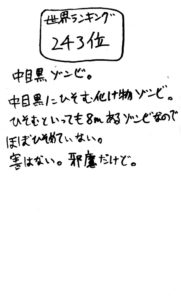 世界ランキング
243位
中目黒ゾンビ。
中目黒にひそむ化け物ゾンビ。
ひそむといっても8mあるゾンビなので
ほぼひそめていない。
害はない。邪魔だけど。